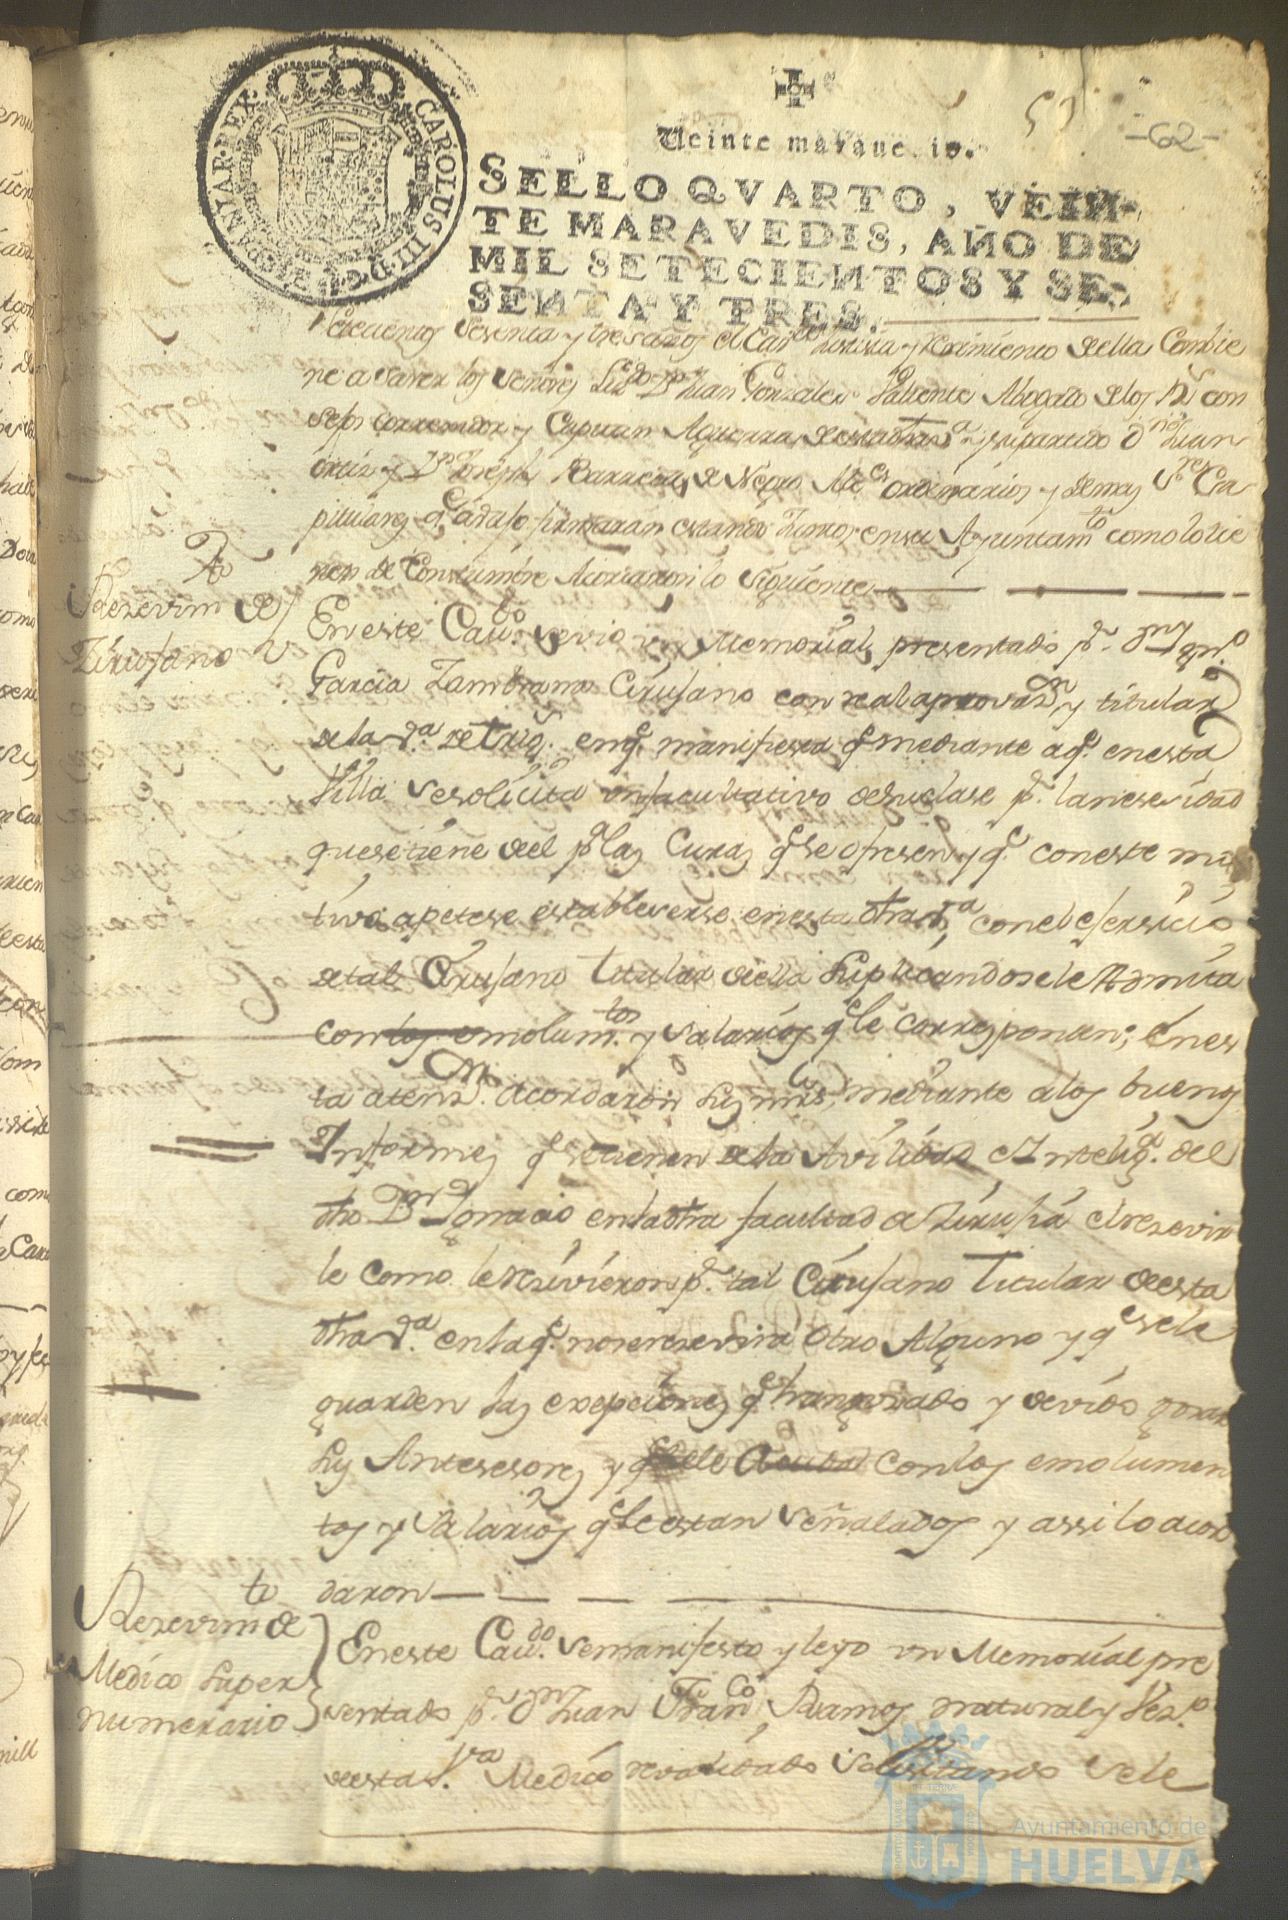 CAROLUS III D G HISPANIAR REX
Veinte maraue is.
62
SELLO QVARTO, VEIN-
TE MARAVEDIS, AÑO DE
MIL SETECIENTOS Y SE-
SENTA Y TRES.
setecientos sesenta y tres años el Justicia y Reximiento della Combie
ne a saver los señores Lizdo Dn Juan Gonzalez Valiente Abogado de los Rs con
sejos corregidor y Capitan Aguerra desta dha va y su partido Dn Juan
Ortiz y Dn Joseph Barrera de Negro Alcs ordinarios y demas Sres Ca
pitulares qe avajo firmaran estando Juntos en su Ayuntamto como lo tie
nen de Constumbre Acordaron lo siguiente
Rezevimto de
Zirujano
En este Cavdo se vio un Memorial presentado pr Dn Ignco
Garcia Zambrano Cirujano con real aprovazn y titular
de la va de Trigs en qe manifiesta qe mediante a qe en esta
Villa se solicita un facultativo de su clase pr la nesesidad
que se tiene del pa las Curas qe se ofresen y qe con este mo
tivo apetese establecerse en esta dha va con el efersicio
de tal Cirujano titular della suplicandose le Admita
con los emolumtos y salarios qe le corresponden; En es
ta atenzn Acordaron sus mrds, mediante a los buenos
Informes qe se tienen de la Avilidad e Inteliga del
dho Dn Ignacio en la dha facultad de Zirujia el rezevir
le como le rezivieron pr tal Cirujano Titular de esta
dha va en la qe no se rezevira Otro Alguno y qe se le
guarden las exepciones qe han gozado y devido gozar
sus Antesesores y qe se le Acuda con los emolumen
tos y Salarios qe le estan señalados y assi lo acor
daron
Rezevimto de
Medico super
numerario
En este Cavdo se manifesto y leyo un Memorial pre
sentado pr Dn Juan Franco Ramos natural y Vezo
de esta va Medico revalidado solisitando se le
Ayuntamiento de
HUELVA